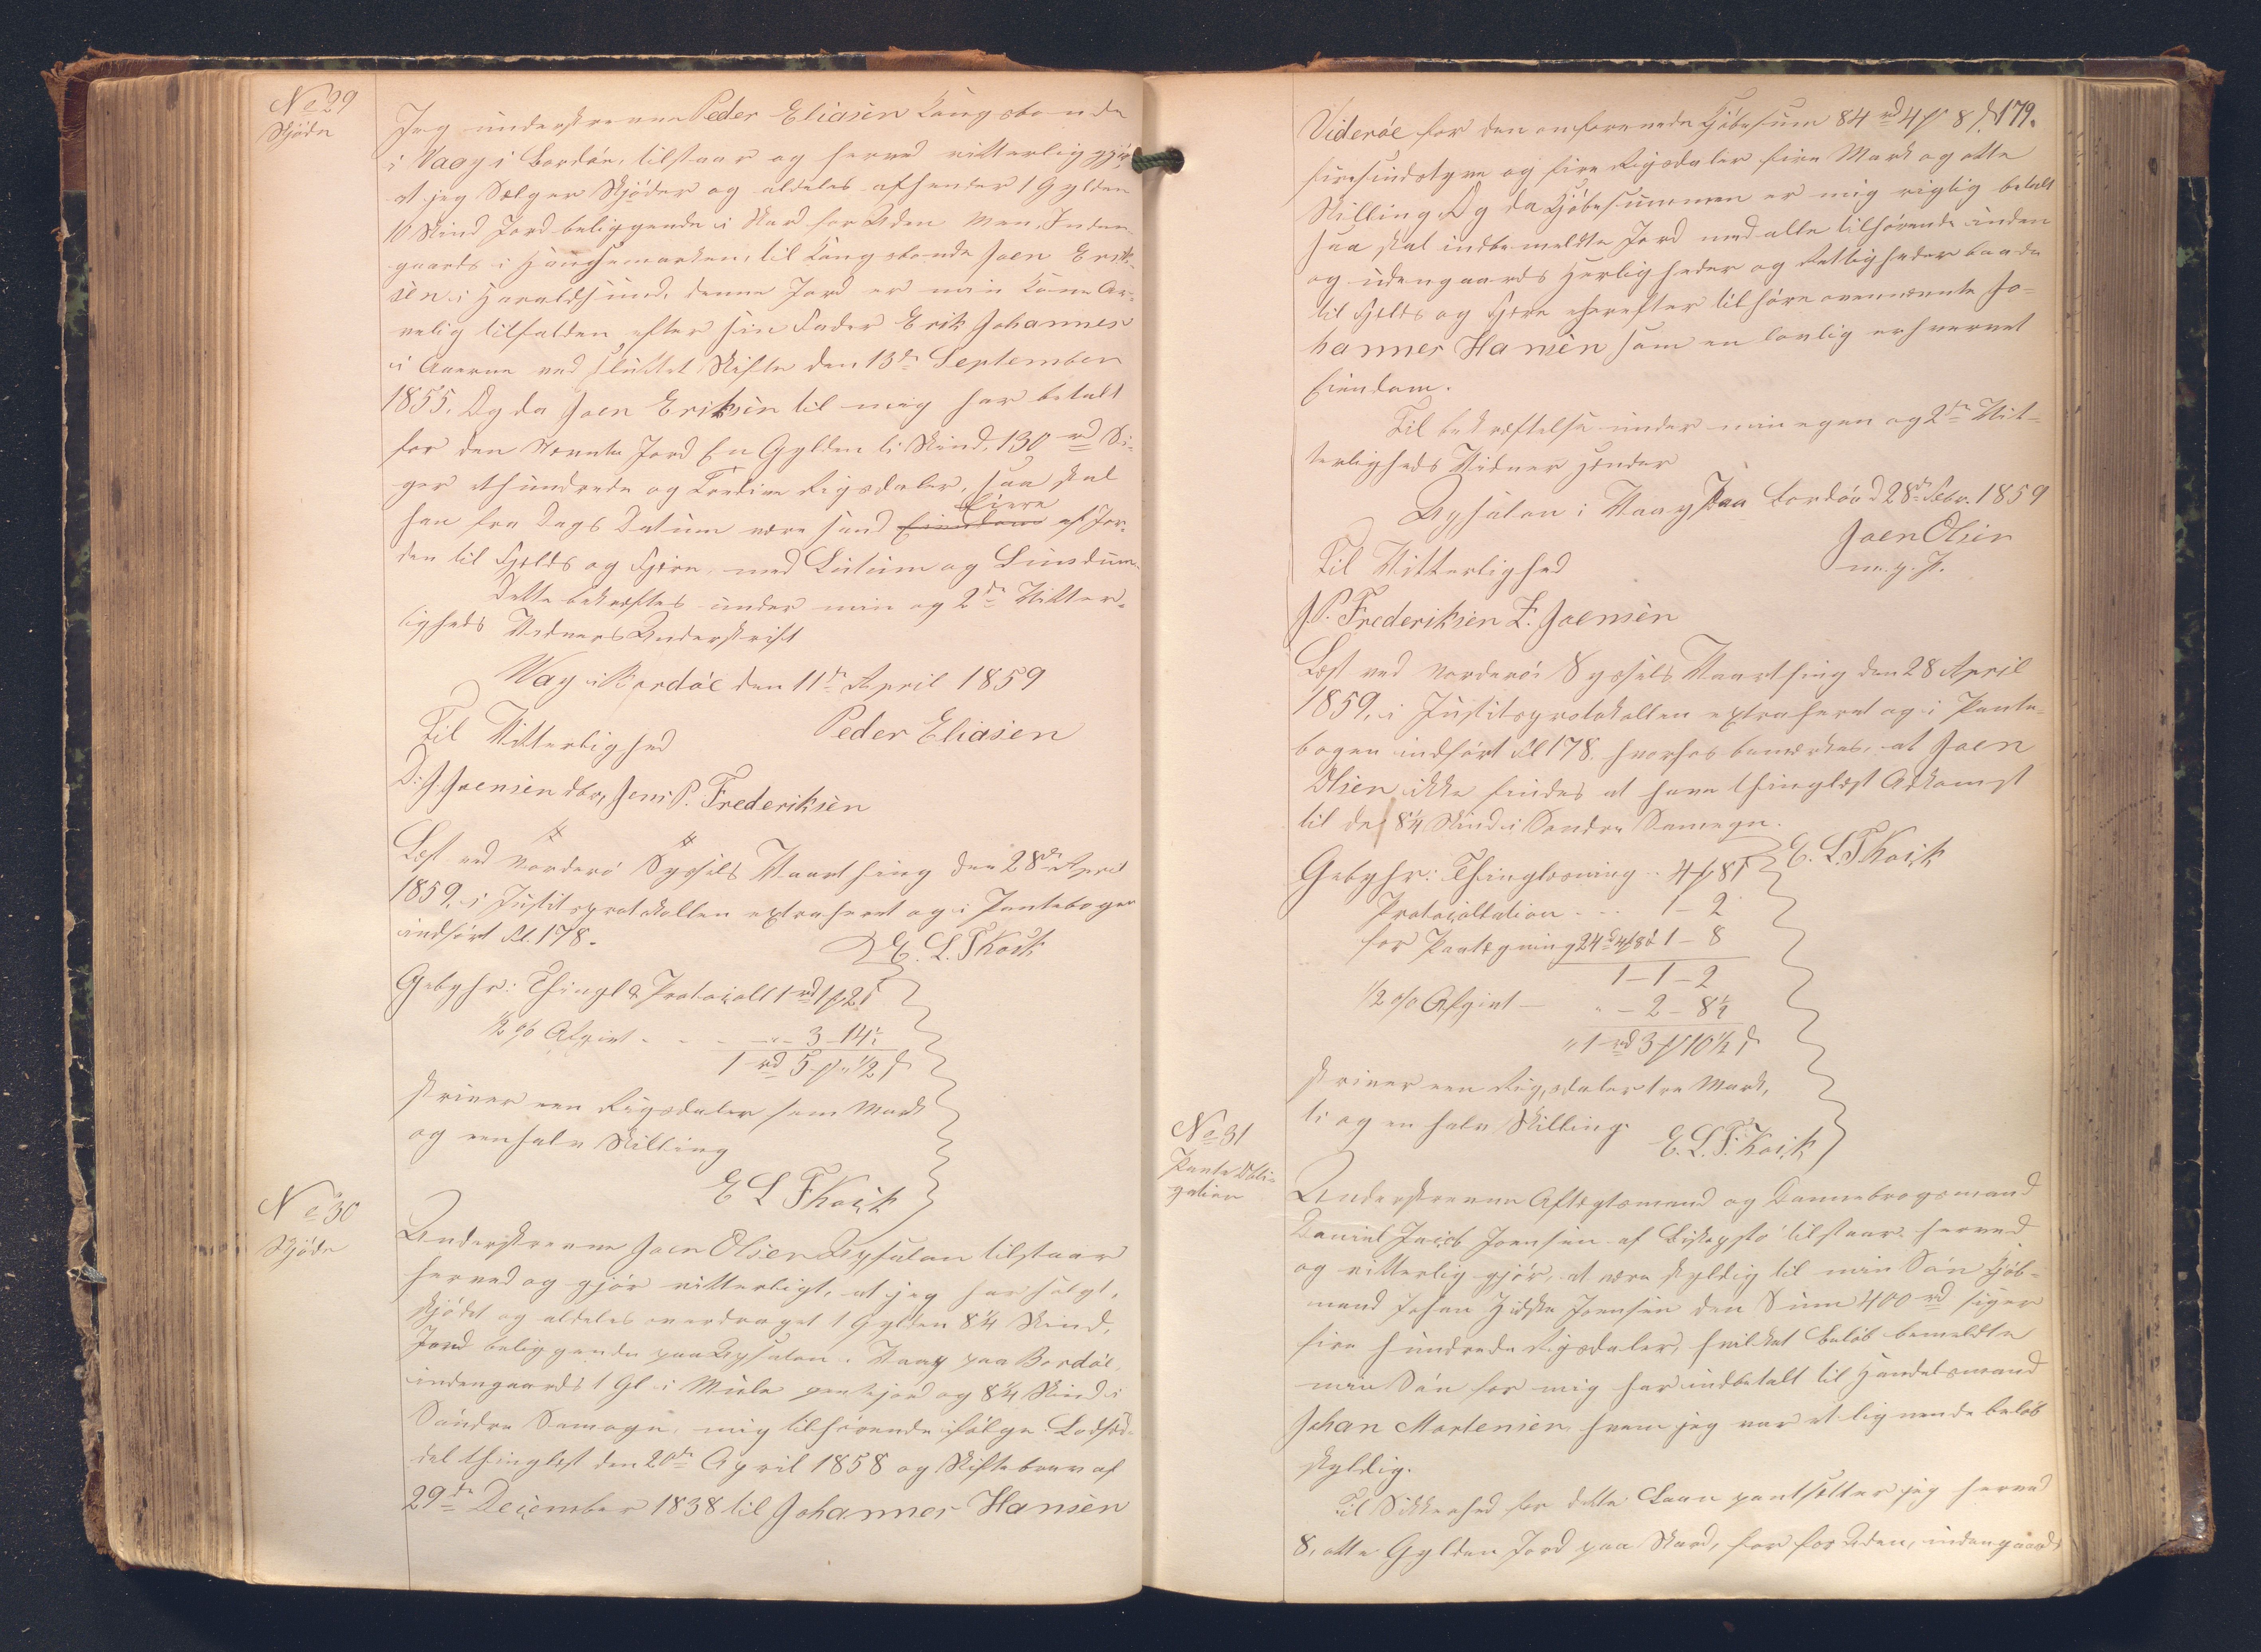 No 29
Skjöde
Jeg underskrevne Peder Eliasen Kongsbonde
i Vaag i Bordöe, tilstaar og herved vitterlig gjör
at jeg Sælger Skjöder og aldeles afhender 1 Gylden
10 Skind Jord beliggende i Skard for Uden men, Inden¬
gaards i Haugsemarken, til Kongsbonde Joen Erik¬
sen i Haraldssund, denne Jord er min Kone Ar¬
velig tilfalden efter sin Fader Erik Johannes
i Aaerne ved sluttet Skifte den 13de September
1855. Og da Joen Eriksen til mig har betalt
for den Nævnte Jord En Gylden ti Skind, 130 rd Si¬
ger ethundrede og Tredive Rigsdaler, saa skal
Eiere
han fra Dags Datum være sand Eiendom af Jor¬
den til Fjelds og Fjære, med Lutum og Lunsdum.
Dette bekræftes under min og 2de Vitter¬
ligheds Vidners Underskrift
Vaag i Bordöe den 11te April 1859
Til Vitterlighed Peder Eliasen
D: J. Joensen dbr, Jens P. Frederiksen
Læst ved Norderö Syssels Vaarthing den 28de April
1859, i Justitsprotokollen extraheret og i Pantebogen
indfört Fol. 178.
E. L. F Koch
Gebyhr: Thingl & Protocoll 1 rd 1 ß 2 s
1/2 o/o Afgivt - - - „ - 3 - 14 1/2
1 rd 5 ß „ 1/2 s
skriver een Rigsdaler fem Mark
og een halv Skilling
E L F Koch
No 30
Skjöde
Underskrevne Joen Olsen Uppsalen tilstaar
herved og gjör vitterligt, at jeg har solgt,
skjödet og aldeles overdraget 1 Gylden 8 1/4 Skind,
Jord beliggende paa Uppsalen i Vaag paa Bordöe,
indengaards 1 Gl i Miele pantejord og 8 1/4 Skind i
Söndre Samogn, mig tilhörende ifölge Lodsed¬
del thinglæst den 20de April 1858 og Skiftebrev af
29de December 1838 til Johannes Hansen
179.
Videröe for den omforenede Kjöbesum 84 rd 4 ß 8 s.
firesindstyve og fire Rigsdaler fire Mark og otte
Skilling. Og da Kjöbesummen er mig rigtig betalt
saa skal indbemeldte Jord med alle tilhörende inden
og udengaards Herligheder og Rettigheder baade
til Fjelds og Fjære herefter tilhöre ovennævnte Jo¬
hannes Hansen som en lovlig erhvervet
Eiendom.
Til bekræftelse under min egen og 2de Vit¬
terligheds Vidner Hender
Upsalen i Vaag paa Bordöe d 28de Febr. 1859
Joen Olsen
m. f. P.
Til Vitterlighed
J. P. Frederiksen Z. Joensen
Læst ved Norderöe Syssels Vaarthing den 28 April
1859, i Justitsprotokollen extraheret og i Pante¬
bogen indfört Fol 178. hvorhos bemærkes, at Joen
Olsen ikke findes at have thinglæst Adkomst
til de 8 1/4 Skind i Söndre Samogn.
E. L. F Koch
Gebyhr: Thinglæsning - 4 ß 8 s
Protocollation - - - 1 - 2
for Paategning 1 - 8
1 - 1 - 2
1/2 o/o Afgivt - „ - 2 - 8 1/2
„ 1 rd 3 ß 10 1/2 s
skriver een Rigsdaler tre Mark,
ti og en halv Skilling.
E. L. F. Koch
No 31
Pante Obli¬
gation
Underskrevne Aftægtsmand og Dannebrogsmand
Daniel Jacob Joensen af Biskopstö tilstaar herved
og vitterlig gjör, at være skyldig til min Sön Kjöb¬
mand Johan Hidske Joensen den Sum 400 rd siger
fire hundrede Rigsdaler, hvilket Belöb bemeldte
min Sön for mig har indbetalt til Handelsmand
Johan Mortensen, hvem jeg var et lignende Belöb
skyldig.
Til Sikkerhed for dette Laan pantsetter jeg herved
8, otte Gylden Jord paa Skard, for for Uden, indengaards